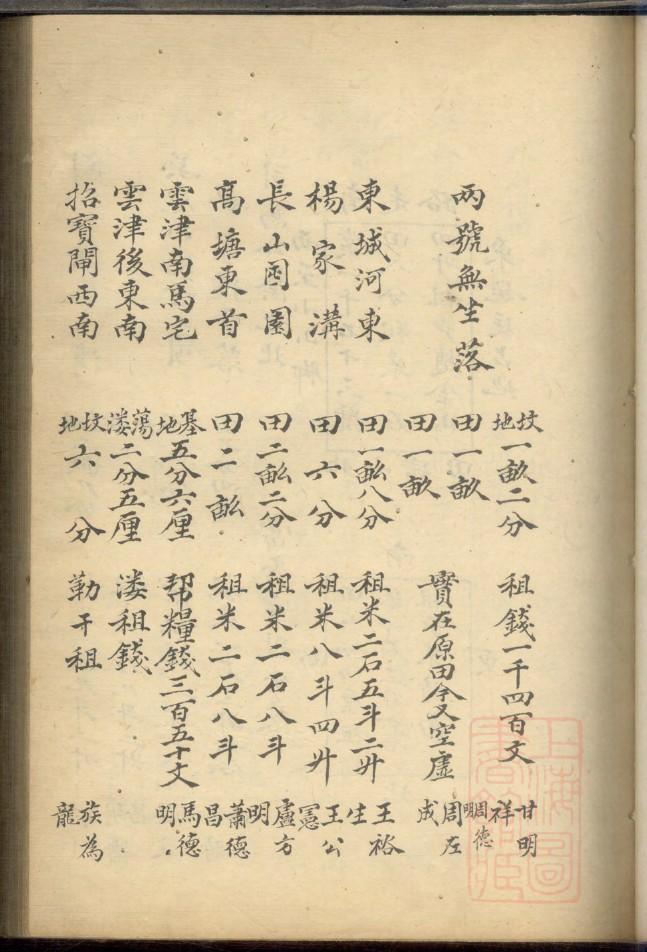 坟地一畝二分 祖錢一千四百文 甘明祥
兩號無坐落 田一畝 周德明
田一畝 實在原田今又空虛 周左成
東城河東 田一畝八分 祖米二石五斗二升 王裕生
楊家溝 田六分 祖米八斗四升 王公憲
長山園 田二畝二分 祖米二石八斗 盧方明
高塘東首 田二畝 祖米二石八斗 蕭德昌
雲津南馬宅 基地五分六厘 幇糧錢三百五十文 馬德明
雲津後東南 蕩漊二分五厘 漊祖錢
招寶閘西南 坟地六分 勤干祖 族為龍
上海圖書館藏